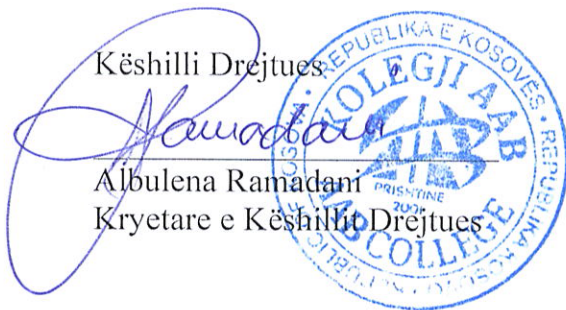 Këshilli Drejtues
Ramadani
Albulena Ramadani
Kryetare e Këshillit Drejtues
REPUBLIKA E KOSOVËS • REPUBLIKA KOSOVO •
KOLEGJI AAB
AAB
PRISHTINË
AAB COLLEGE